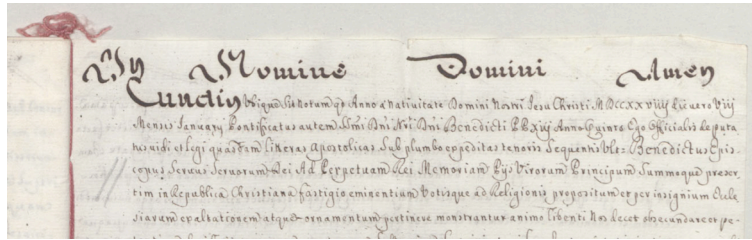 In Nomine Domini Amen
Cunctis Ubique sit notum qd Anno a Nativitate Domini Nostri Jesu Christi MDCCXXVIIIJ Die vero VIIJ
Mensis January Pontificatus autem SSmi Dni Nri Dni Benedicti PP XIIJ Anno Quinto Ego Officialis deputa
tus vidi et legi quasdam literas Apostolicas sub plumbo expeditas tenoris sequentis Vlz Benedictus Epis
copus Servus Servorum Dei Ad Perpetuam Rei Memoriam Pijs Virorum Principum Summoque preser
tim in Republica Christiana fastigio eminentium Votisque ad Religionis propositum et per insignium Eccle
siarum exaltationem atque ornamentum pertinere monstrantur animo libenti Nos decet obsecundare et pe